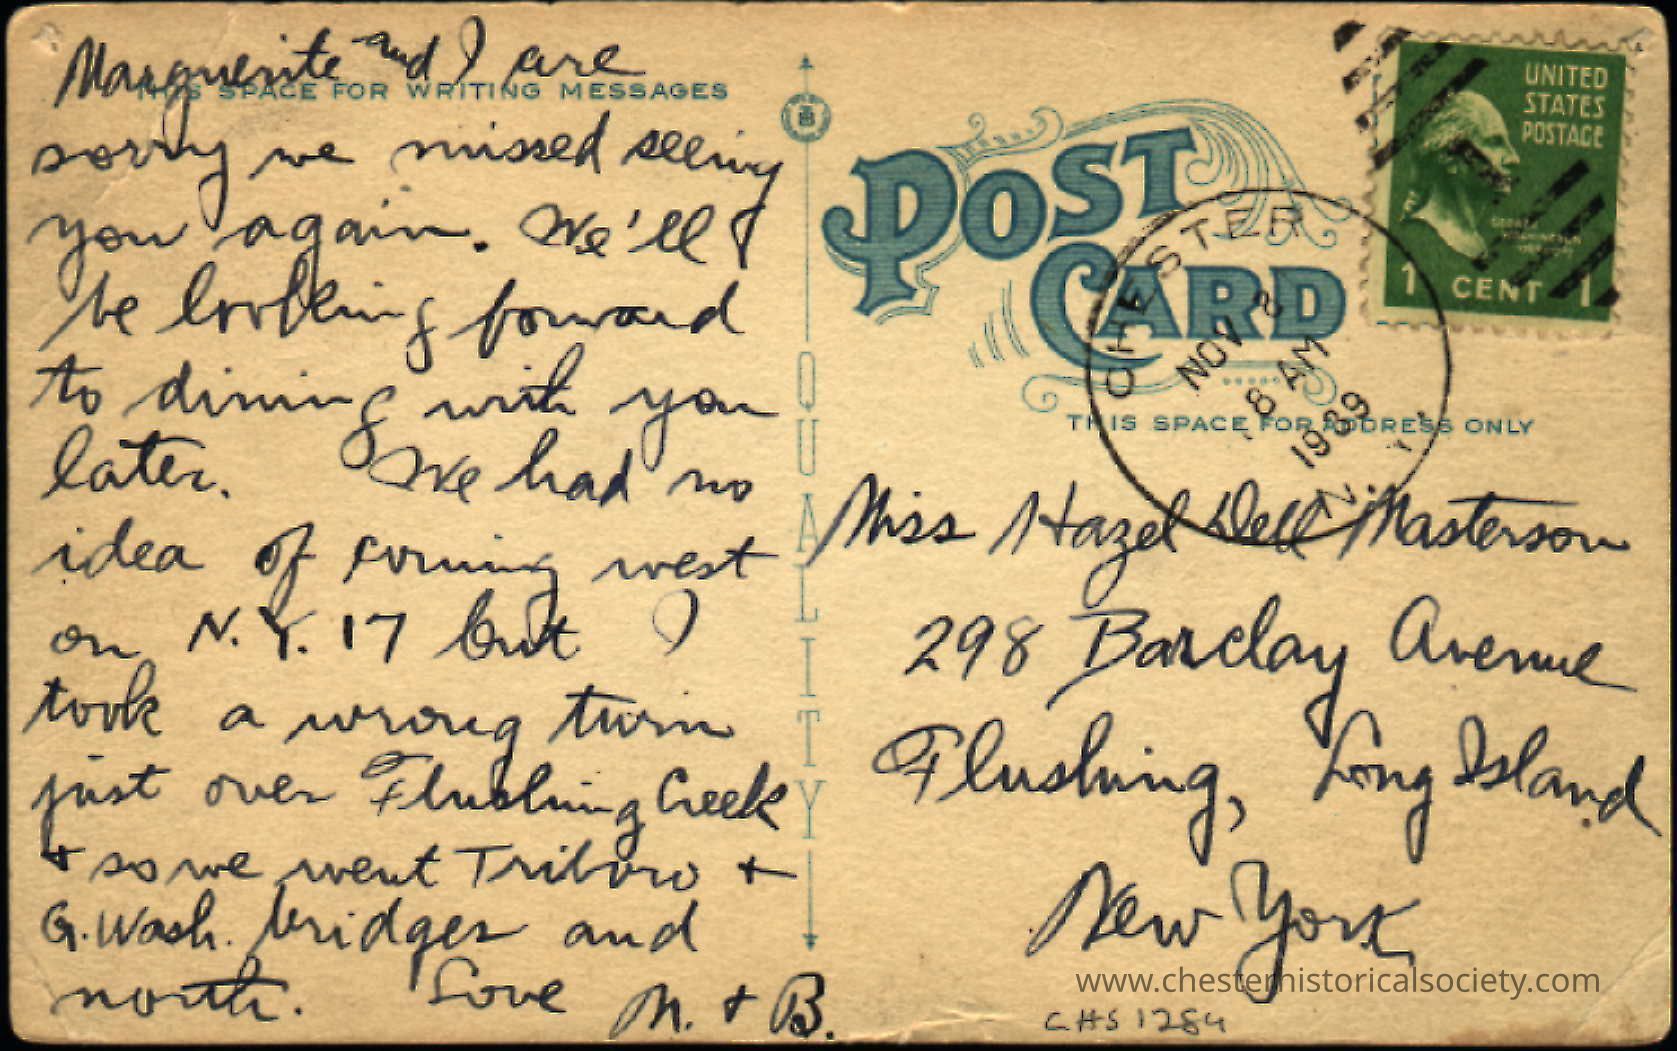 Marguerite and I are
THIS SPACE FOR WRITING MESSAGES
sorry we missed seeing
you again. We'll
be looking forward
to dining with you
later. We had no
idea of coming west
on N.Y. 17 but I
took a wrong turn
just over Flushing Creek
+ so we went Triboro +
G. Wash. bridges and
north. Love M. + B.
QUALITY
POST
CARD
UNITED
STATES
POSTAGE
1 CENT 1
CHESTER
NOV 2
8 AM
1939
N.Y.
THIS SPACE FOR ADDRESS ONLY
Miss Hazel Dell Masterson
298 Barclay Avenue
Flushing, Long Island
New York
www.chesterhistoricalsociety.com
CHS 1284